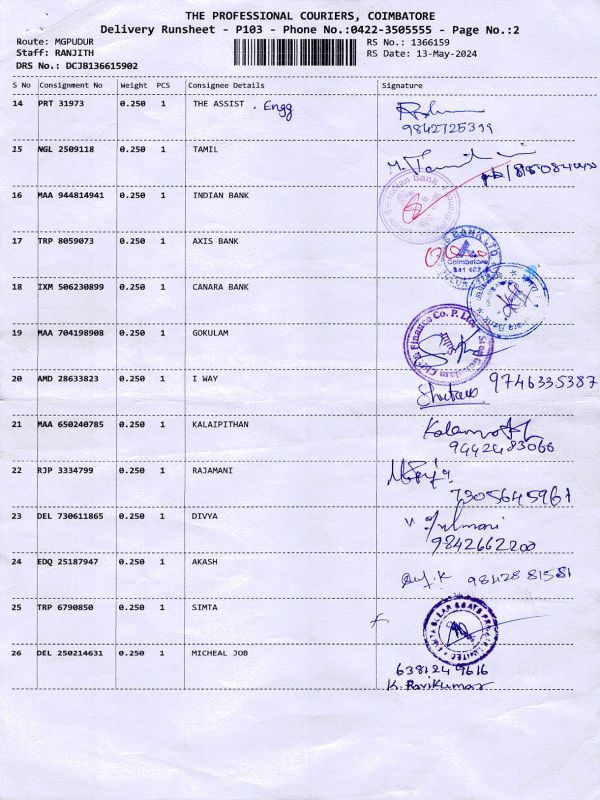 THE PROFESSIONAL COURIERS, COIMBATORE
Delivery Runsheet - P103 - Phone No.:0422-3505555 - Page No.:2
Route: MGPUDUR
RS No.: 1366159
Staff: RANJITH
RS Date: 13-May-2024
DRS No.: DCJB136615902
S No Consignment No Weight PCS Consignee Details Signature
14 PRT 31973 0.250 1 THE ASSIST . Engg
9842725399
15 NGL 2509118 0.250 1 TAMIL
16 MAA 944814941 0.250 1 INDIAN BANK
17 TRP 8059073 0.250 1 AXIS BANK
BANK LTD
Coimbatore
18 IXM 506230899 0.250 1 CANARA BANK
19 MAA 704198908 0.250 1 GOKULAM
Finance Co. P. Ltd.
20 AMD 28633823 0.250 1 I WAY
9746335387
21 MAA 650240785 0.250 1 KALAIPITHAN
9442483066
22 RJP 3334799 0.250 1 RAJAMANI
7305645961
23 DEL 730611865 0.250 1 DIVYA
9842662200
24 EDQ 25187947 0.250 1 AKASH
98428 81581
25 TRP 6790850 0.250 1 SIMTA
26 DEL 250214631 0.250 1 MICHEAL JOB
6381249616
K. Ravikumar